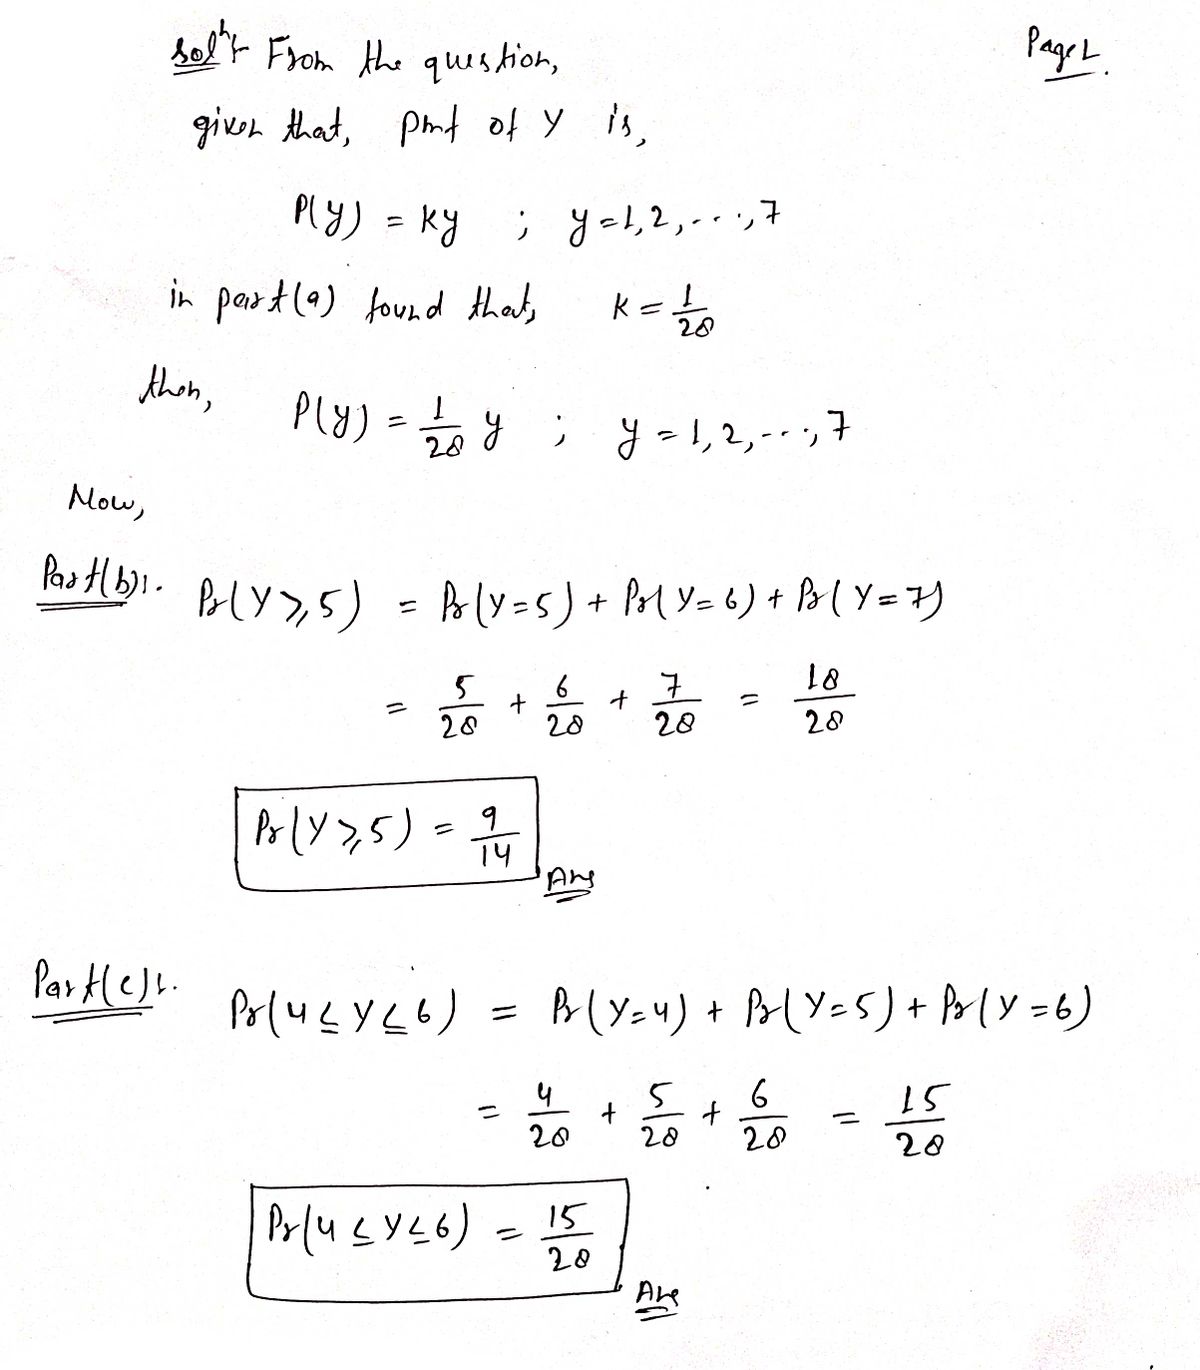 Solⁿ:- From the question,
Page 1.
given that, pmf of Y is,
P(y) = ky ; y=1,2,...,7
in part(a) found that, k = 1/28
then, P(y) = 1/28 y ; y = 1,2,...,7
Now,
Part(b):- Pr(Y ≥ 5) = Pr(Y=5) + Pr(Y=6) + Pr(Y=7)
= 5/28 + 6/28 + 7/28 = 18/28
Pr(Y ≥ 5) = 9/14
Ans
Part(c):- Pr(4 ≤ Y ≤ 6) = Pr(Y=4) + Pr(Y=5) + Pr(Y=6)
= 4/28 + 5/28 + 6/28 = 15/28
Pr(4 ≤ Y ≤ 6) = 15/28
Ans